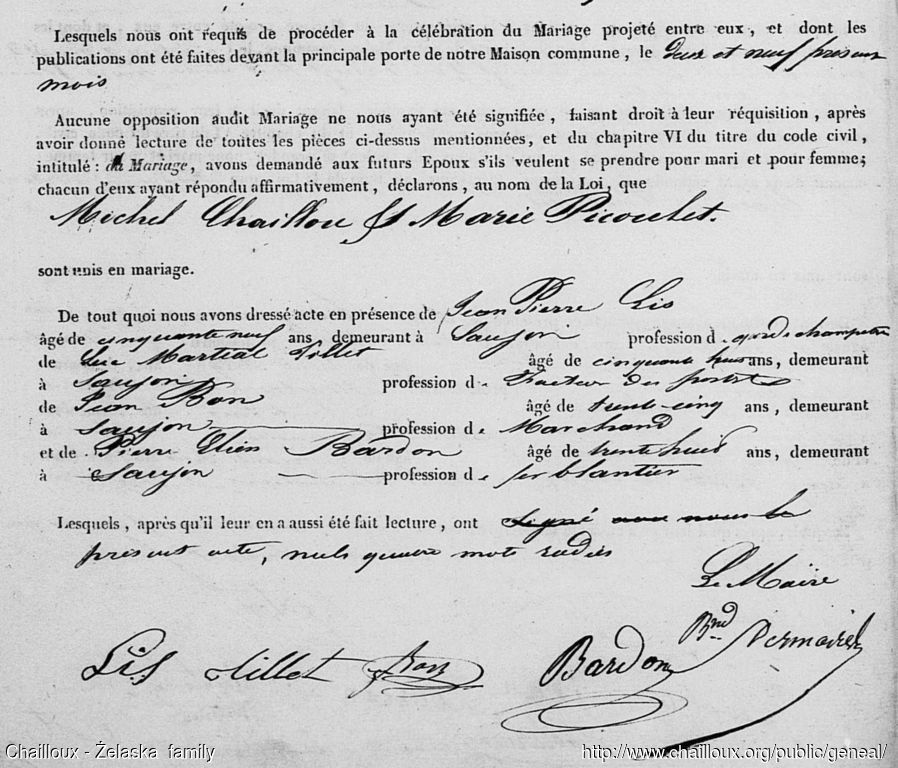 Lesquels nous ont requis de procéder à la célébration du Mariage projeté entre eux, et dont les
publications ont été faites devant la principale porte de notre Maison commune, le deux et neuf present
mois
Aucune opposition audit Mariage ne nous ayant été signifiée, faisant droit à leur réquisition, après
avoir donné lecture de toutes les pièces ci-dessus mentionnées, et du chapitre VI du titre du code civil,
intitulé : du Mariage, avons demandé aux futurs Epoux s'ils veulent se prendre pour mari et pour femme;
chacun d'eux ayant répondu affirmativement, déclarons, au nom de la Loi, que
Michel Chaillou Et Marie Picoulet.
sont unis en mariage.
De tout quoi nous avons dressé acte en présence de Jean Pierre Lis
âgé de cinquante neuf ans, demeurant à Saujon profession d. garde champetre
de Luc Martial Lillet âgé de cinquante huit ans, demeurant
à Saujon profession d. Facteur des postes
de Jean Bon âgé de trente-cinq ans, demeurant
à Saujon profession d. Marchand
et de Pierre Bardon âgé de trente huit ans, demeurant
à Saujon profession d. ferblantier
Lesquels, après qu'il leur en a aussi été fait lecture, ont signé avec nous le
présent acte, nuls quatre mots radiés
Le Maire
Lis Lillet Bon Bardon
Chailloux - Želaska family http://www.chailloux.org/public/geneal/